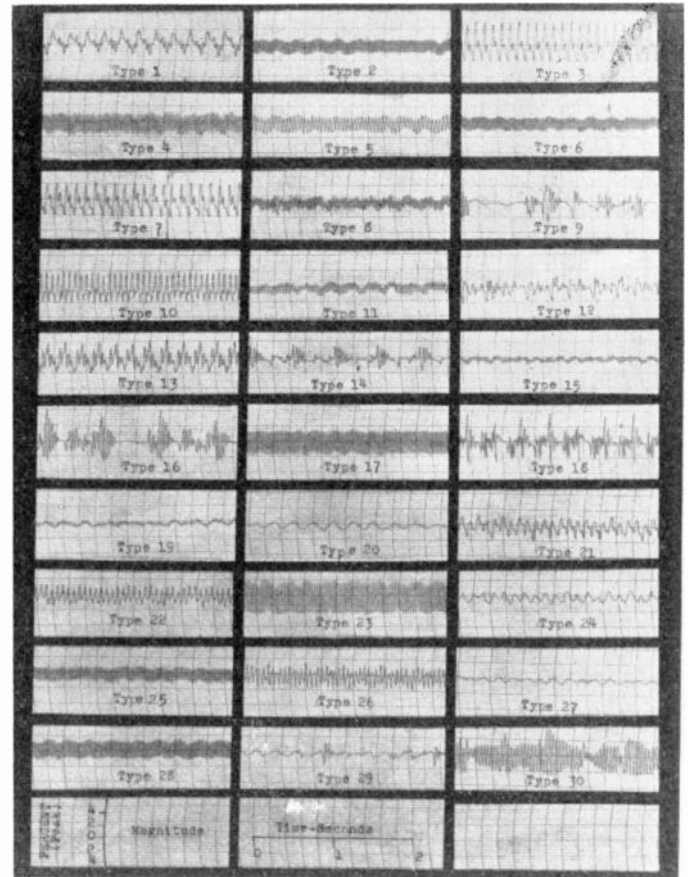 Type 1
Type 2
Type 3
Type 4
Type 5
Type 6
Type 7
Type 8
Type 9
Type 10
Type 11
Type 12
Type 13
Type 14
Type 15
Type 16
Type 17
Type 18
Type 19
Type 20
Type 21
Type 22
Type 23
Type 24
Type 25
Type 26
Type 27
Type 28
Type 29
Type 30
PERCENT
(Peak)
Magnitude
Time-Seconds
0 1 2